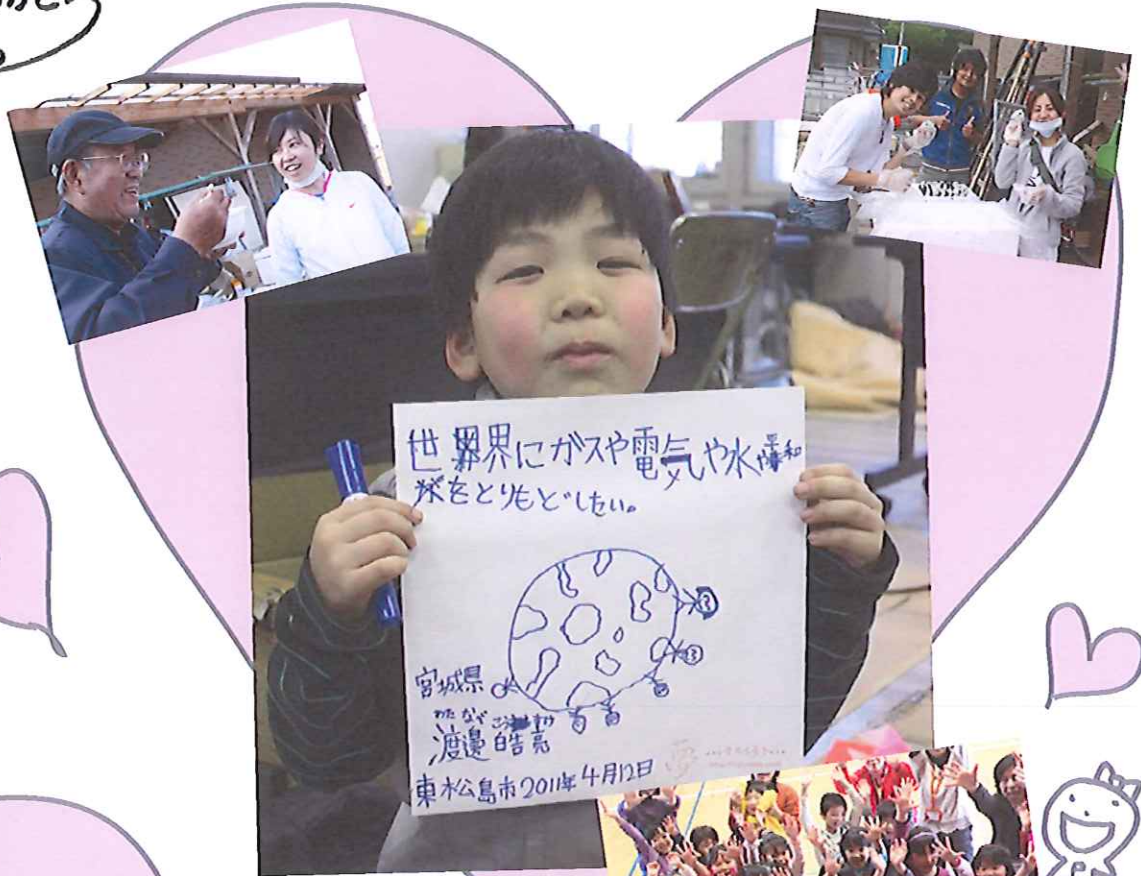 世界にガスや電気や水や平和
をとりもどしたい。
宮城県
わたなべ
渡邊皓亮
東松島市2011年4月12日
夢